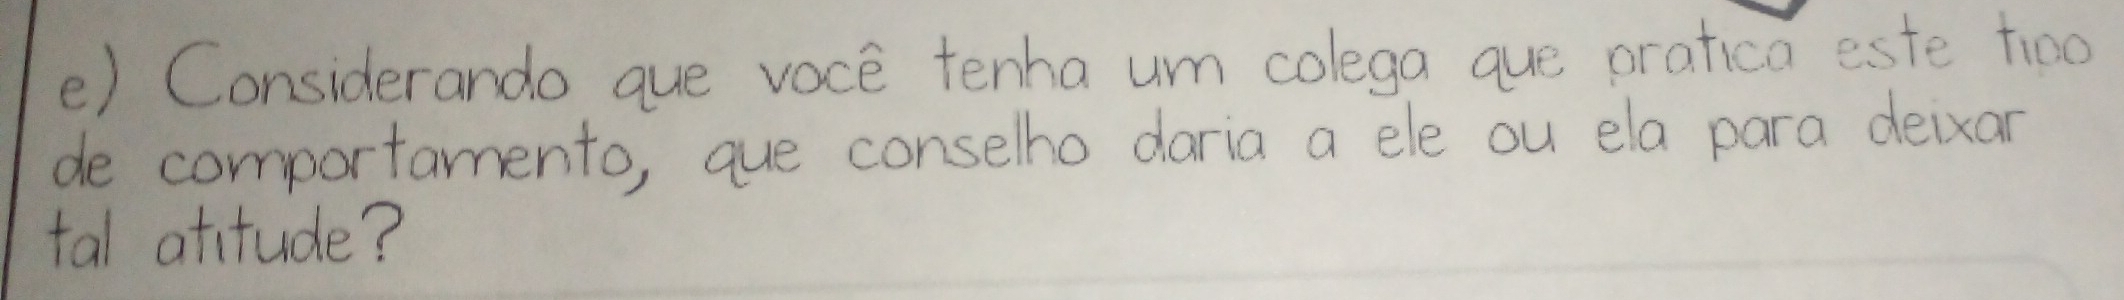 e) Considerando que você tenha um colega que pratica este tipo
de comportamento, que conselho daria a ele ou ela para deixar
tal atitude?